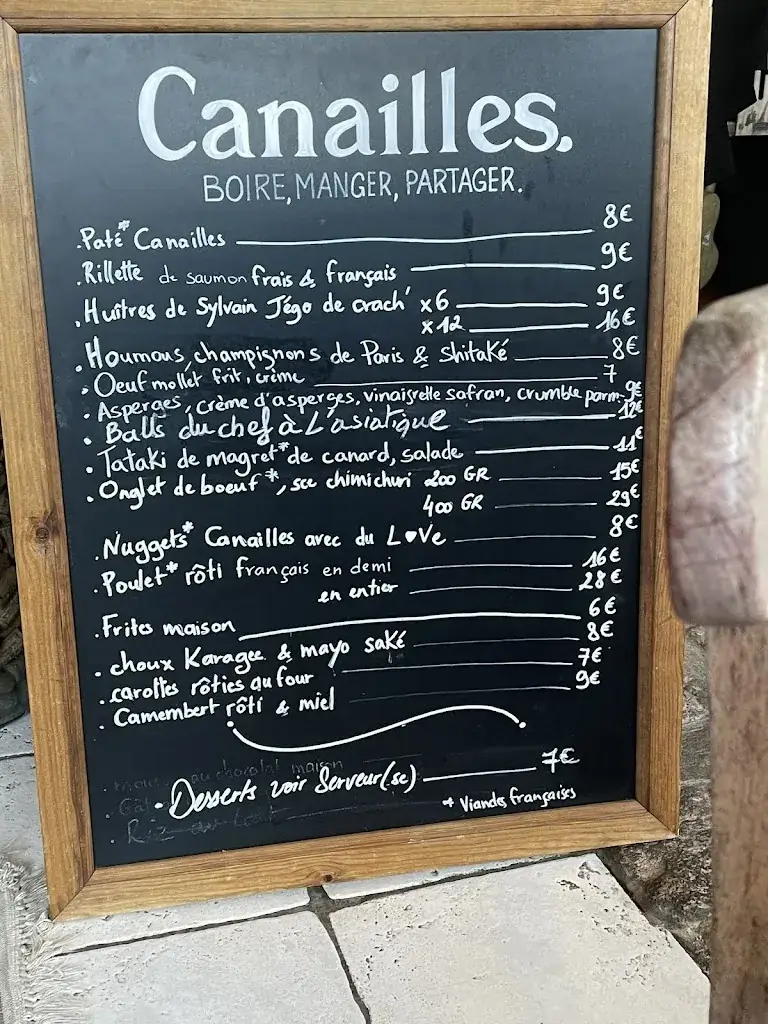 Canailles.
BOIRE, MANGER, PARTAGER.
. Paté* Canailles 8€
. Rillette de saumon frais & français 9€
. Huîtres de Sylvain Jégo de crach' x6 9€
x12 16€
. Houmous, champignons de Paris & shitaké 8€
. Oeuf mollet frit, crème 7
. Asperges, crème d'asperges, vinaigrette safran, crumble parm. 9€
. Balls du chef à L'asiatique 12€
. Tataki de magret* de canard, salade 11€
. Onglet de boeuf*, sce chimichuri 200 GR 15€
400 GR 29€
. Nuggets* Canailles avec du L♥Ve 8€
. Poulet* rôti français en demi 16€
en entier 28€
. Frites maison 6€
. choux Karagee & mayo saké 8€
. carottes rôties au four 7€
. Camembert rôti & miel 9€
. au chocolat maison
. Desserts voir Serveur(se) 7€
. Riz au
* Viandes françaises